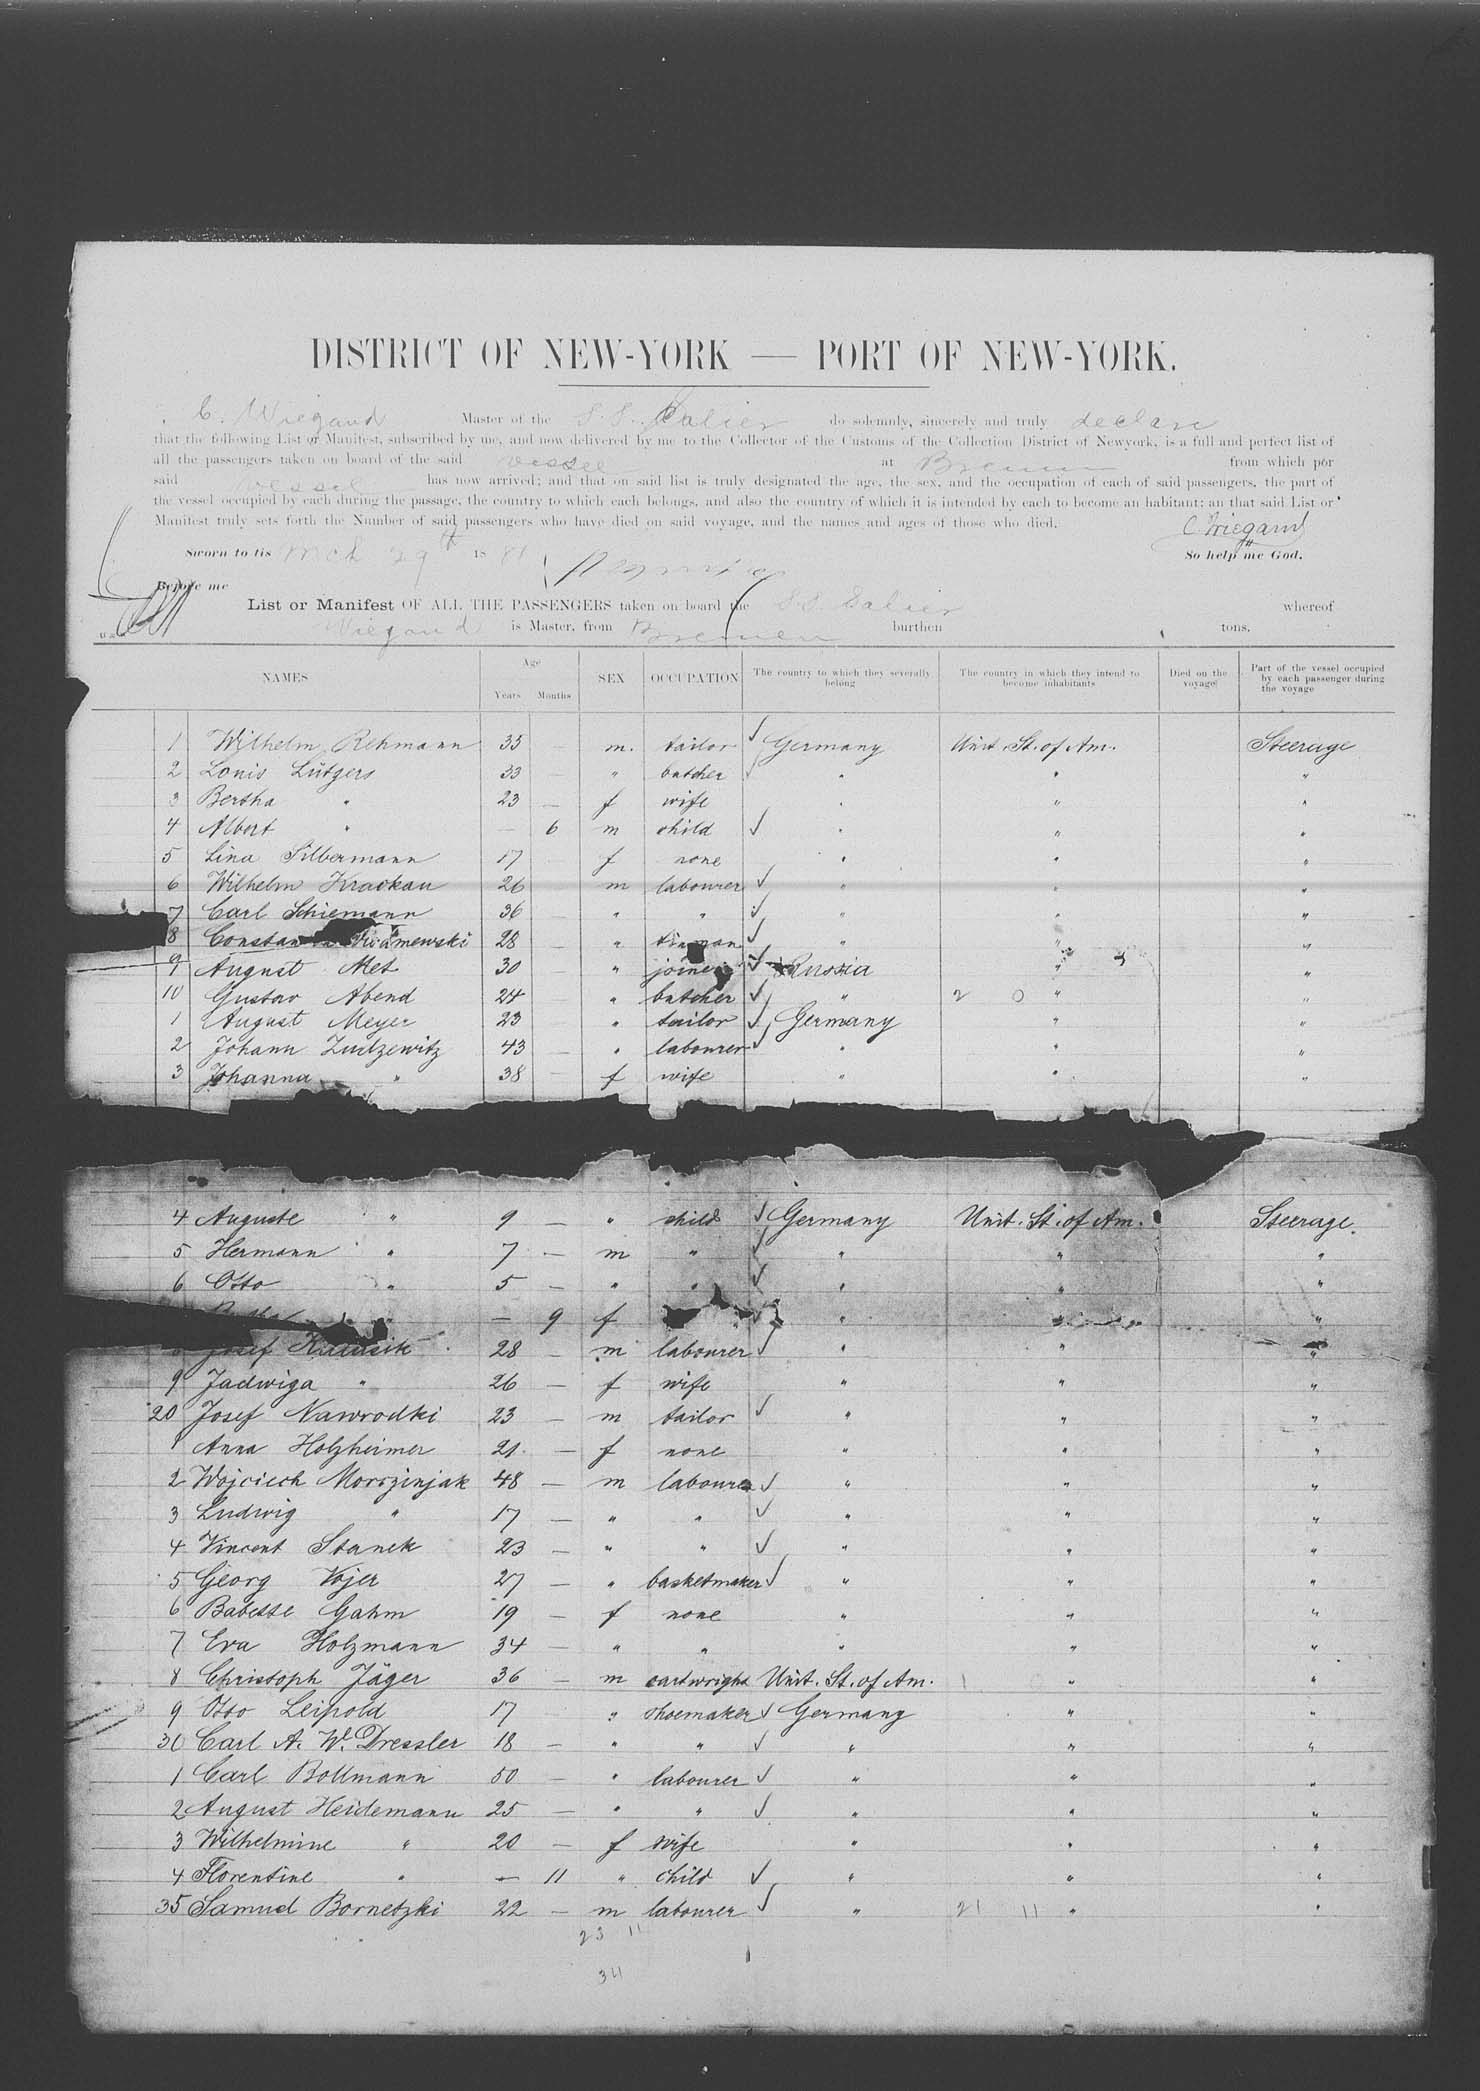 DISTRICT OF NEW-YORK — PORT OF NEW-YORK.
C. Wiegand Master of the S. S. Salier do solemnly, sincerely and truly declare
that the following List or Manifest, subscribed by me, and now delivered by me to the Collector of the Customs of the Collection District of Newyork, is a full and perfect list of
all the passengers taken on board of the said vessel at Bremen from which por
said vessel has now arrived; and that on said list is truly designated the age, the sex, and the occupation of each of said passengers, the part of
the vessel occupied by each during the passage, the country to which each belongs, and also the country of which it is intended by each to become an habitant; an that said List or
Manifest truly sets forth the Number of said passengers who have died on said voyage, and the names and ages of those who died.
C Wiegand
Sworn to tis Mch 29th 1881 So help me God.
Before me
List or Manifest OF ALL THE PASSENGERS taken on board the S.S. Salier whereof
Wiegand is Master, from Bremen burthen tons.
NAMES Age Years Months SEX OCCUPATION The country to which they severally belong The country in which they intend to become inhabitants Died on the voyage Part of the vessel occupied by each passenger during the voyage
1 Wilhelm Rehmann 33 — m. tailor Germany Unit. St. of Am. Steerage
2 Louis Lütgers 33 — " butcher " " "
3 Bertha " 23 — f wife " " "
4 Albert " — 6 m child " " "
5 Lina Silbermann 17 f none " " "
6 Wilhelm Krackau 26 m labourer " " "
7 Carl Schiemann 36 — " " " " "
8 28 — " " " "
9 August Met 30 — " joiner Russia " "
10 Gustav Abend 24 — " butcher " 2 0 " "
1 August Meyer 23 — " tailor Germany " "
2 Johann Zudzewitz 43 — " labourer " " "
3 Johanna " 38 — f wife " " "
4 Auguste " 9 — " child Germany Unit. St. of Am. Steerage.
5 Hermann " 7 — m " " " "
6 Otto " 5 — " " " " "
— 9 f " " "
Josef 28 — m labourer " " "
9 Jadwiga " 26 — f wife " " "
20 Josef Nawrodki 23 — m tailor " " "
1 Anna Holzheimer 21 — f none " " "
2 Wojciech Morszinjak 48 — m labourer " " "
3 Ludwig " 17 — " " " " "
4 Vincent Stanek 23 — " " " " "
5 Georg Vojer 27 — " basketmaker " " "
6 Babette Gahm 19 — f none " " "
7 Eva Holzmann 34 — " " " " "
8 Christoph Jäger 36 — m cartwright Unit. St. of Am. " "
9 Otto Leipold 17 " shoemaker Germany " "
30 Carl A. W. Dressler 18 — " " " " "
1 Carl Bollmann 50 — " labourer " " "
2 August Heidemann 25 — " " " " "
3 Wilhelmine " 20 — f wife " " "
4 Florentine " — 11 " child " " "
35 Samuel Bornetzki 22 — m labourer " 21 11 " "
23 11
34